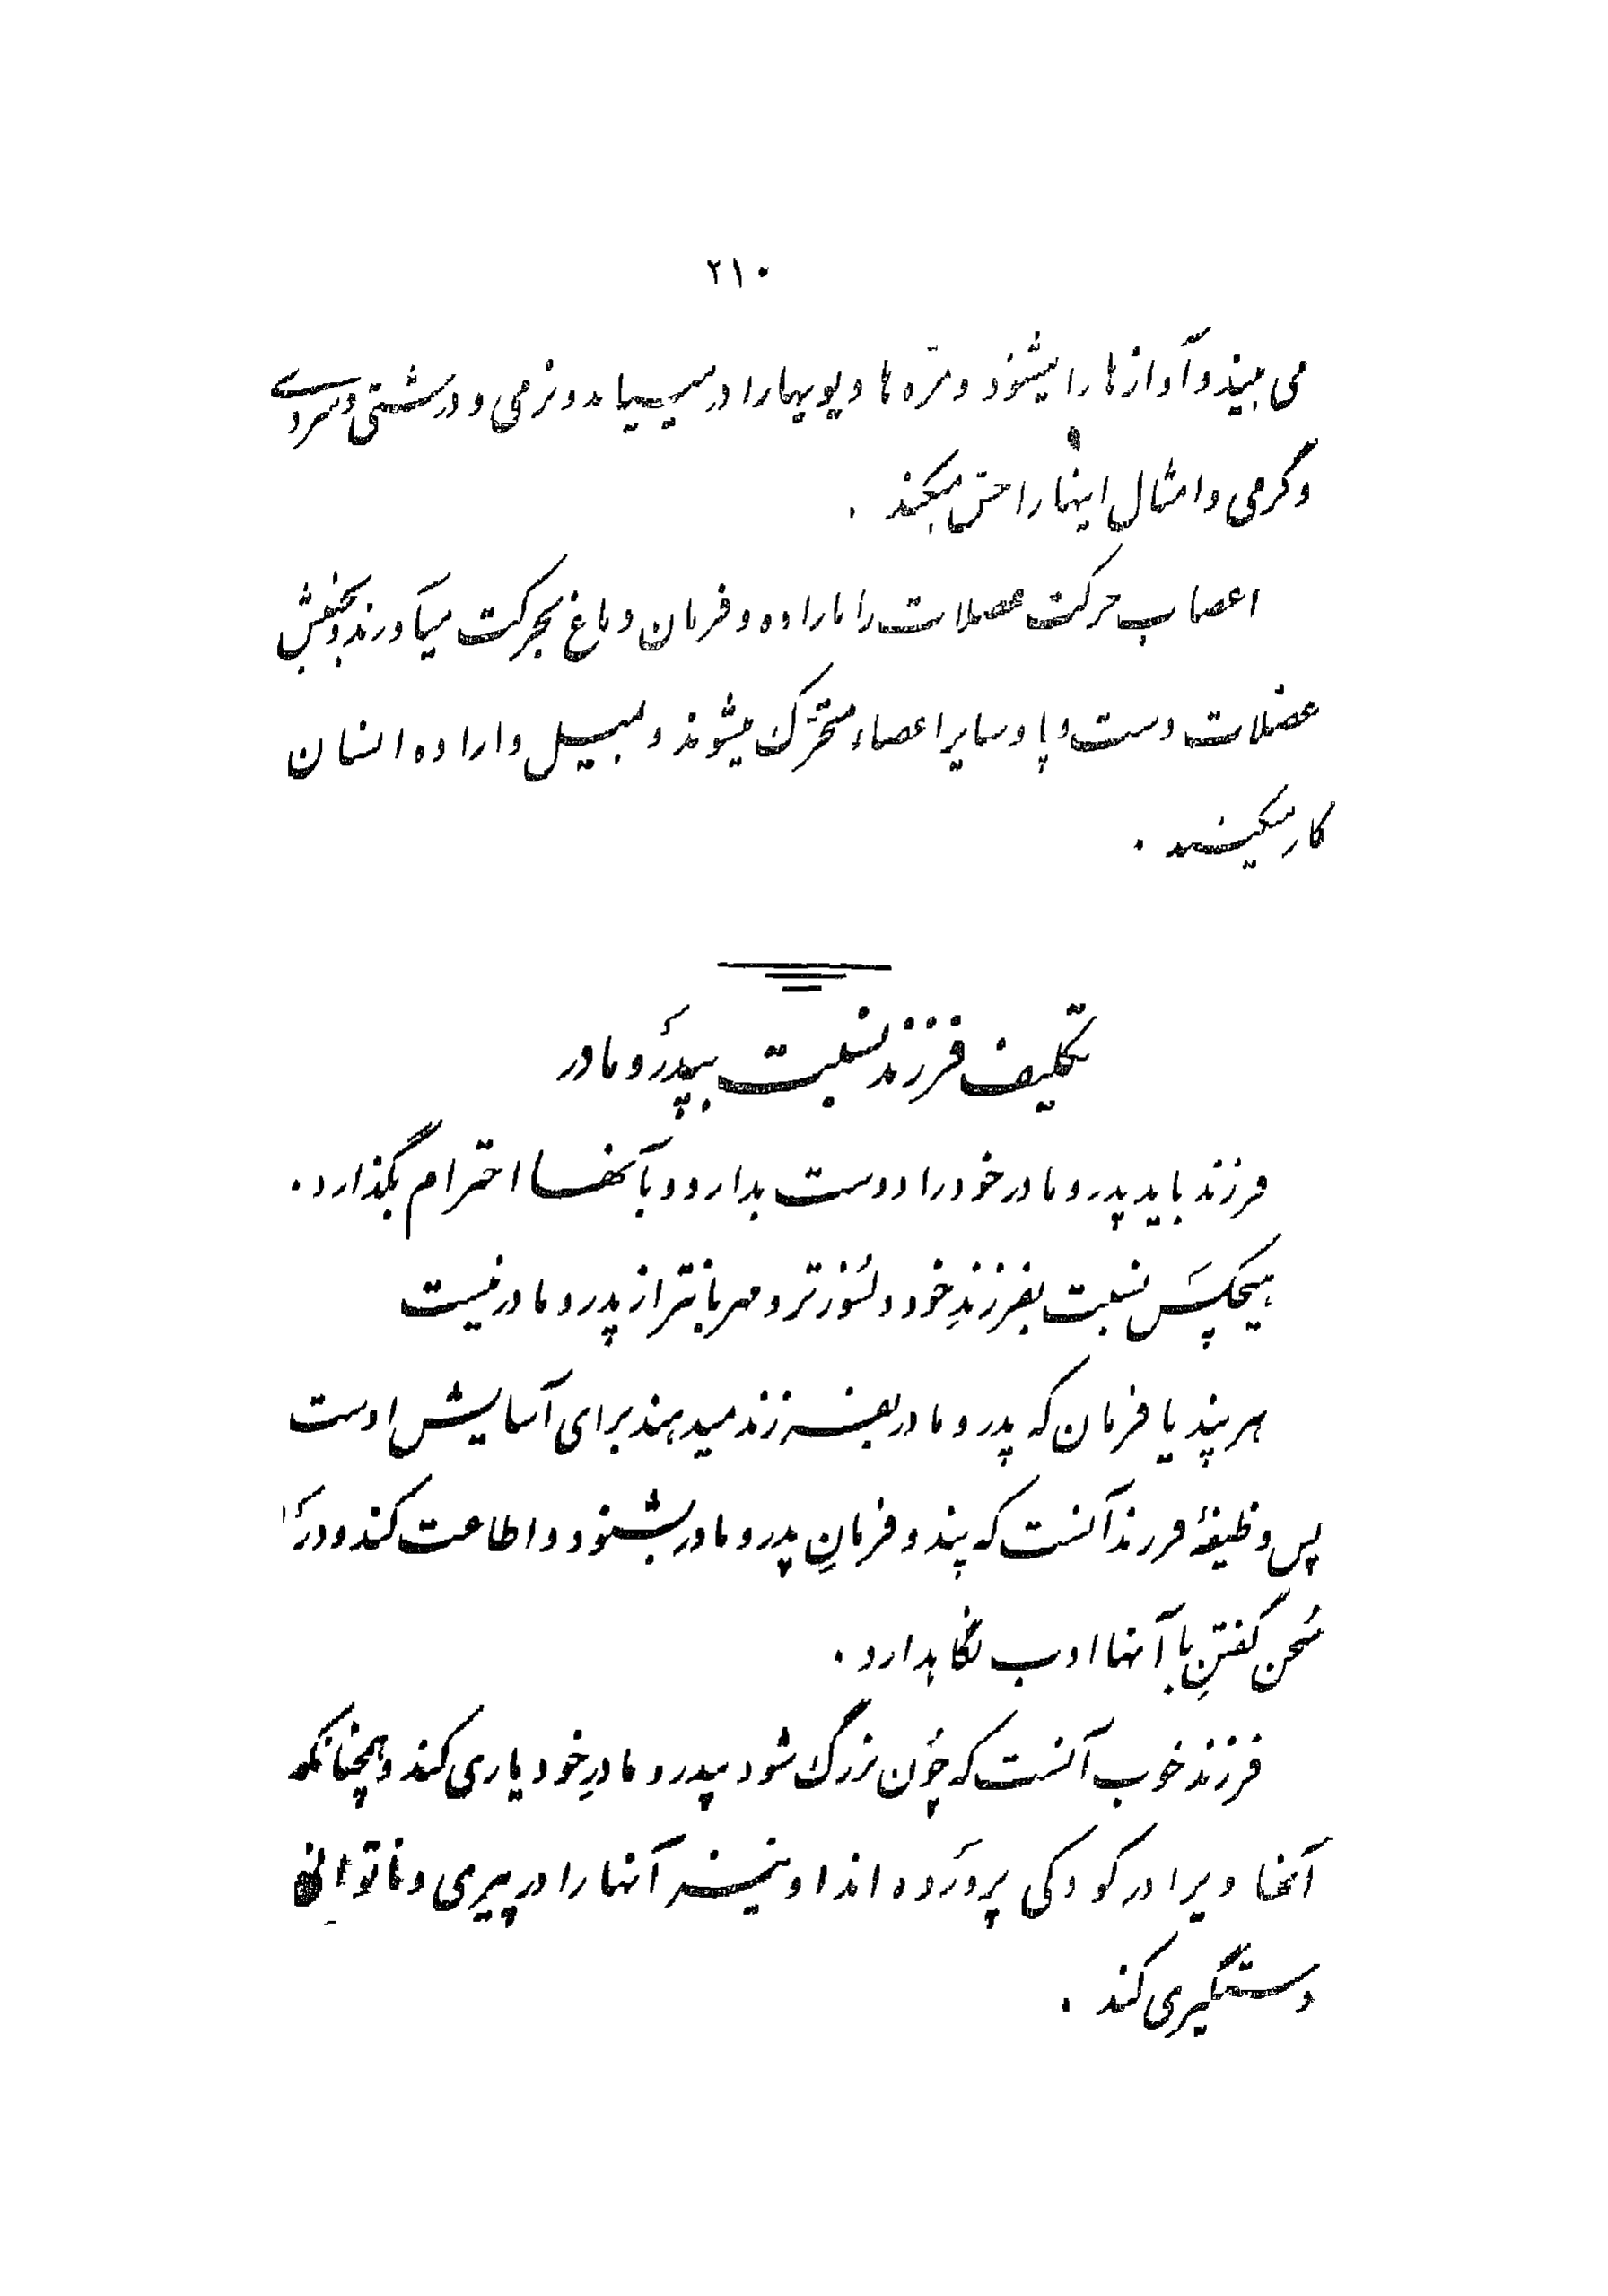 ۲۱۰
می بیند و آوازها را میشنود و مزه ها و بویها را در مییابد و نرمی و درشتی و سردی
و گرمی و امثال اینها را حس میکند .
اعصاب حرکت عضلات را باراده و فرمان دماغ بحرکت میآورند و بجنبش
عضلات دست و پا و سایر اعضاء متحرّک میشوند و بمیل و اراده انسان
کار میکنند .
تکلیف فرزند نسبت بپدر و مادر
فرزند باید پدر و مادر خود را دوست بدارد و بآنها احترام بگذارد .
هیچکس نسبت بفرزندِ خود دلسوزتر و مهربانتر از پدر و مادر نیست
هر پند یا فرمان که پدر و مادر بفرزند میدهند برای آسایش اوست
پس وظیفهٔ فرزند آنست که پند و فرمانِ پدر و مادر بشنود و اطاعت کند و در
سخن گفتنِ با آنها ادب نگاهدارد .
فرزند خوب آنست که چون بزرگ شود بپدر و مادرِ خود یاری کند و همچنانکه
آنها ویرا در کودکی پرورده اند او نیز آنها را در پیری و ناتوانی
دستگیری کند .